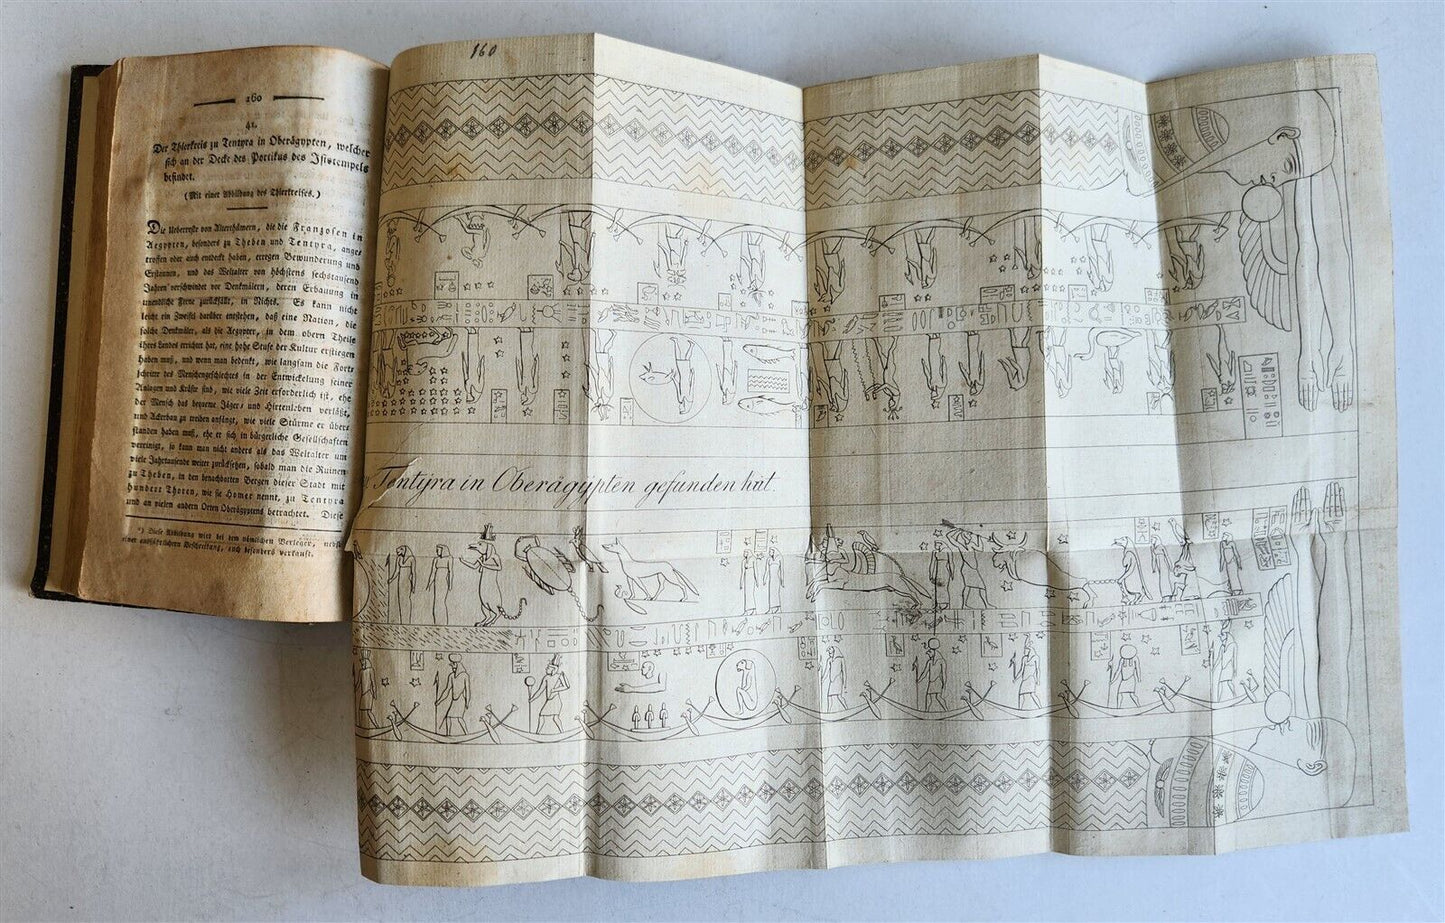 160
41.
Der Thierkreis zu Tentyra in Oberägypten, welcher
sich an der Decke des Portikus des Isistempels
befindet.
(Mit einer Abbildung des Thierkreises.)
Die Ueberreste von Alterthümern, die die Franzosen in
Aegypten, besonders zu Theben und Tentyra, ange
troffen oder auch entdeckt haben, erregen Bewunderung und
Erstaunen, und das Weltalter von höchstens sechstausend
Jahren verschwindet vor Denkmälern, deren Erbauung in
unendliche Ferne zurückfällt, in Nichts. Es kann nicht
leicht ein Zweifel darüber entstehen, daß eine Nation, die
solche Denkmäler, als die Aegypter, in dem obern Theile
ihres Landes errichtet hat, eine hohe Stufe der Kultur erstiegen
haben muß, und wenn man bedenkt, wie langsam die Fort
schritte des Menschengeschlechtes in der Entwickelung seiner
Anlagen und Kräfte sind, wie viele Zeit erforderlich ist, ehe
der Mensch das bequeme Jäger- und Hirtenleben verläßt,
und Ackerbau zu treiben anfängt, wie viele Stürme er über
standen haben muß, ehe er sich in bürgerliche Gesellschaften
vereinigt, so kann man nicht anders als das Weltalter um
viele Jahrtausende weiter zurücksehen, sobald man die Ruinen
zu Theben, in den benachbarten Bergen dieser Stadt mit
hundert Thoren, wie sie Homer nennt, zu Tentyra
und an vielen andern Orten Oberägyptens betrachtet. Diese
*) Diese Abbildung wird bei dem nämlichen Verleger, nebst
einer ausführlichern Beschreibung, auch besonders verkauft.
160
Tentyra in Oberägypten gefunden hat